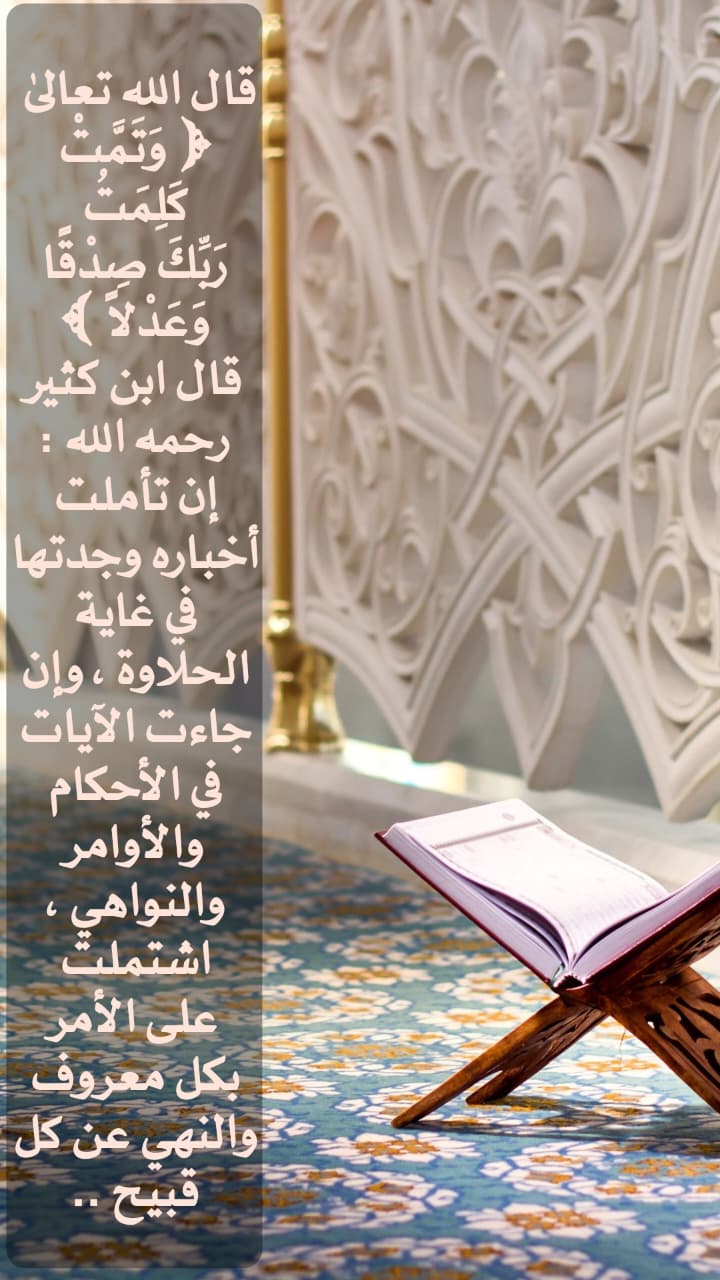 قال الله تعالىٰ
﴿ وَتَمَّتْ
كَلِمَتُ
رَبِّكَ صِدْقًا
وَعَدْلاً ﴾
قال ابن كثير
رحمه الله :
إن تأملت
أخباره وجدتها
في غاية
الحلاوة ، وإن
جاءت الآيات
في الأحكام
والأوامر
والنواهي ،
اشتملت
على الأمر
بكل معروف
والنهي عن كل
قبيح ..